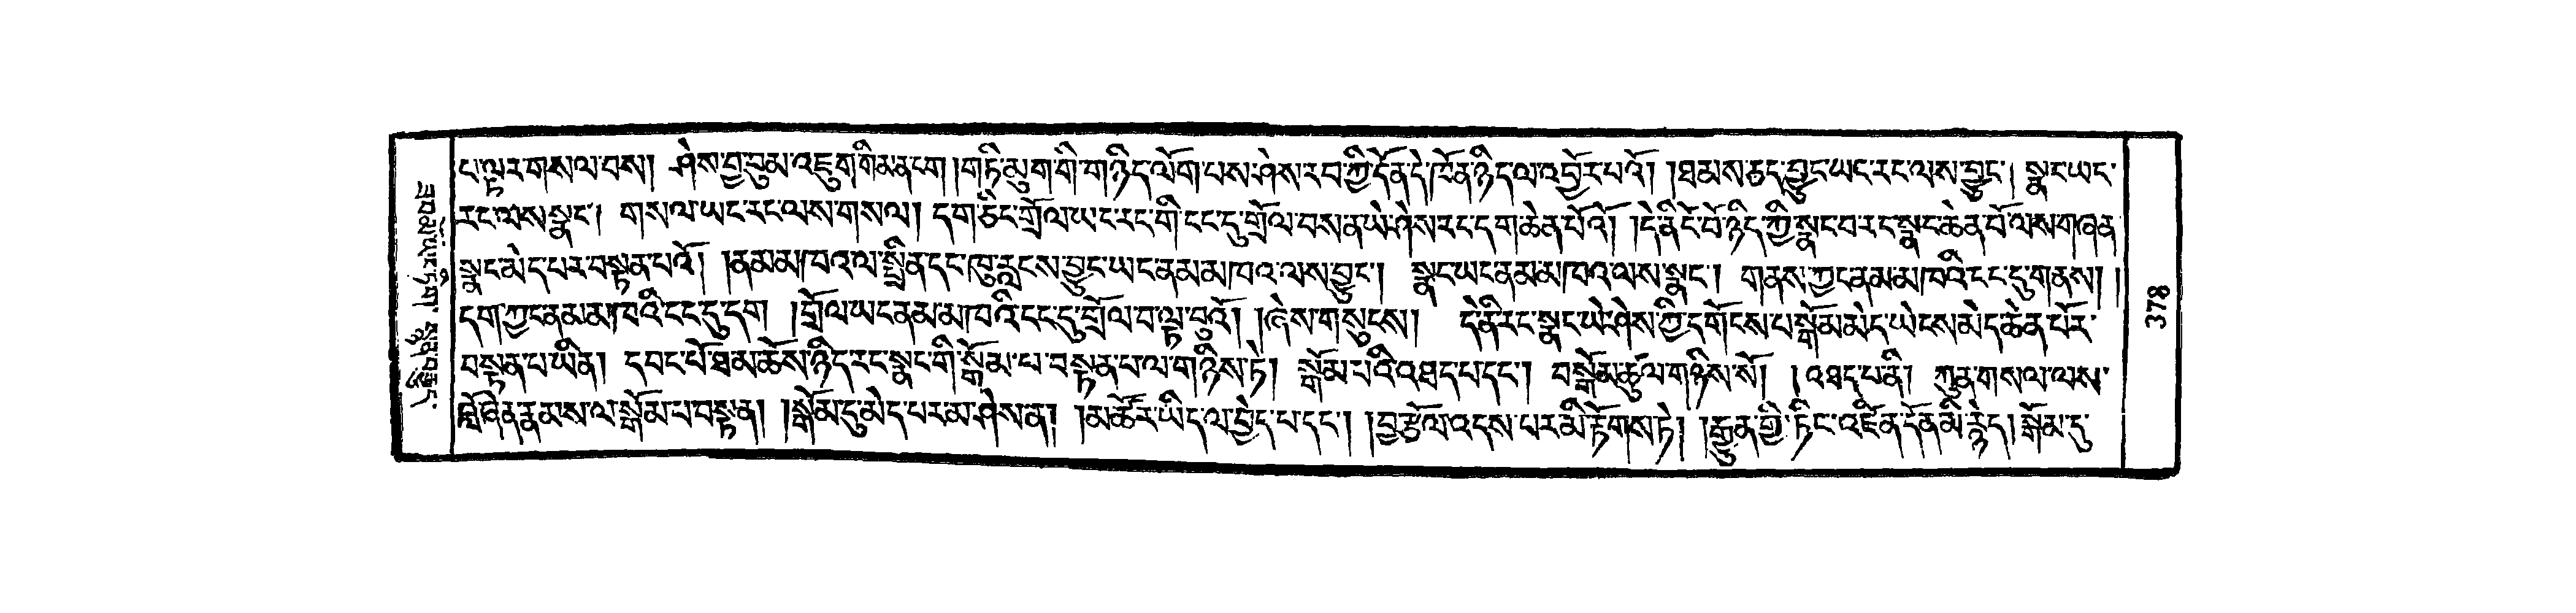 ང་ལྟར་གསལ་བས། ཤེས་བྱ་དུམ་འཇུག་གིམན་ངག །གཏི་མུག་གི་གཉིད་ལོག་པས་ཤེས་རབ་ཀྱི་དོན་དེ་ཁོ་ན་ཉིད་ལ་འབྱོར་པའོ། །ཐམས་ཅད་བྱུང་ཡང་རང་ལས་བྱུང་། སྣང་ཡང་
རང་ལས་སྣང་། གསལ་ཡང་རང་ལས་གསལ། དག་ཅིང་གྲོལ་ཡང་རང་གི་ངང་དུ་གྲོལ་བས་ན་ཡེ་ཤེས་རང་དག་ཆེན་པོའོ། །དེ་ནི་ངོ་བོ་ཉིད་ཀྱི་སྣང་བ་རང་སྣང་ཆེན་པོ་ལས་གཞན
སྣང་མེད་པར་བསྟན་པའོ། །ནམ་མཁའ་ལ་སྤྲིན་དང་ཁུ་རླངས་བྱུང་ཡང་ནམ་མཁའ་ལས་བྱུང་། སྣང་ཡང་ནམ་མཁའ་ལས་སྣང་། གནས་ཀྱང་ནམ་མཁའི་ངང་དུ་གནས། །
དག་ཀྱང་ནམ་མཁའི་ངང་དུ་དག །གྲོལ་ཡང་ནམ་མཁའི་ངང་དུ་གྲོལ་བ་ལྟ་བུའོ། །ཞེས་གསུངས། དེ་ནི་རང་སྣང་ཡེ་ཤེས་ཀྱི་དགོངས་པ་སྒོམ་མེད་ཡེངས་མེད་ཆེན་པོར་
བསྟན་པ་ཡིན། དབང་པོ་ཐམ་ཆོས་ཉིད་རང་སྣང་གི་སྒོམ་པ་བསྟན་པ་ལ་གཉིས་ཏེ། སྒོམ་པའི་འཐད་པ་དང་། བསྒོམ་ཚུལ་གཉིས་སོ། །འཐད་པ་ནི། ཀུན་གསལ་ལས་
བློ་ཞེན་རྣམས་ལ་སྒོམ་པ་བསྟན། །སྒོམ་དུ་མེད་པར་མ་ཤེས་ན། །མ་ཚོར་ཡིད་ལ་བྱེད་པ་དང་། །བྱ་རྩོལ་འདས་པར་མི་རྟོགས་ཏེ། །རྒྱུན་གྱི་ཏིང་འཛིན་དོན་མི་རྙེད། སྒོམ་དུ་